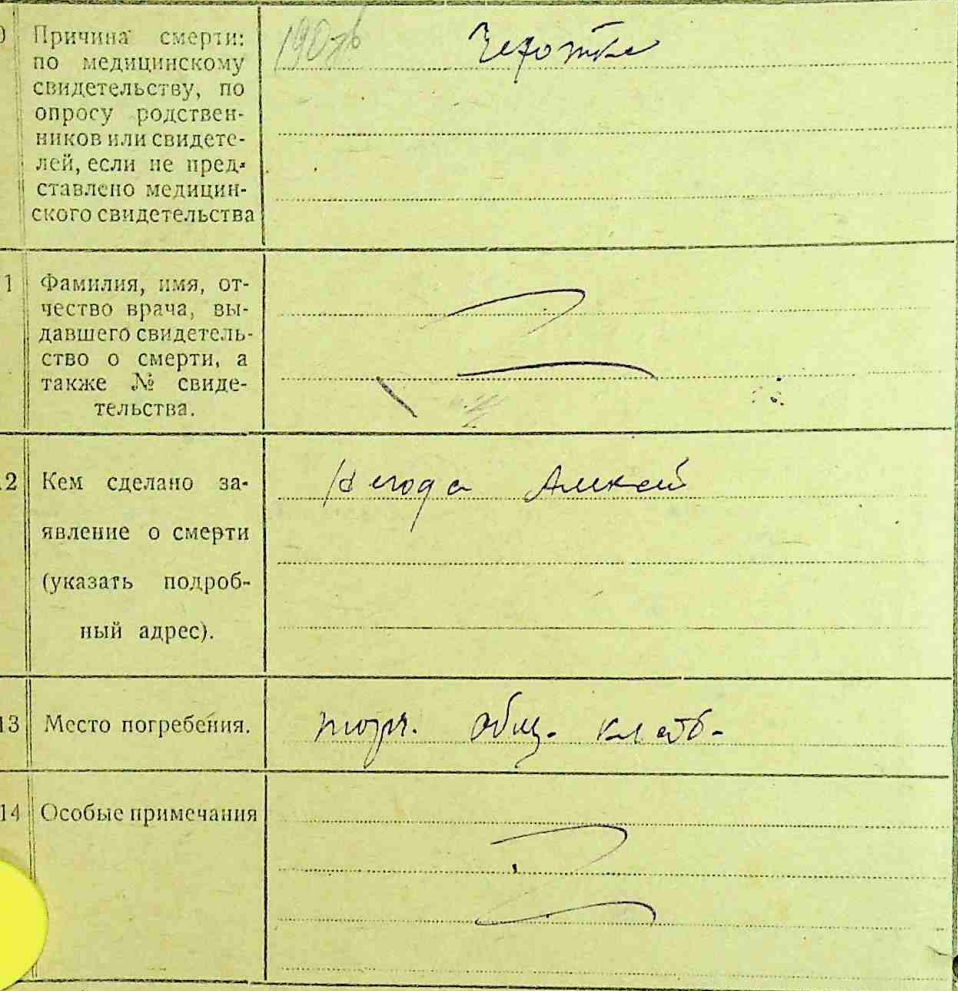 Причина смерти:
по медицинскому
свидетельству, по
опросу родствен-
ников или свидете-
лей, если не пред-
ставлено медицин-
ского свидетельства
Чехотка
1 Фамилия, имя, от-
чество врача, вы-
давшего свидетель-
ство о смерти, а
также № свиде-
тельства.
2 Кем сделано за-
явление о смерти
(указать подроб-
ный адрес).
Негода Алексей
13 Место погребения.
общ. кладб.
14 Особые примечания